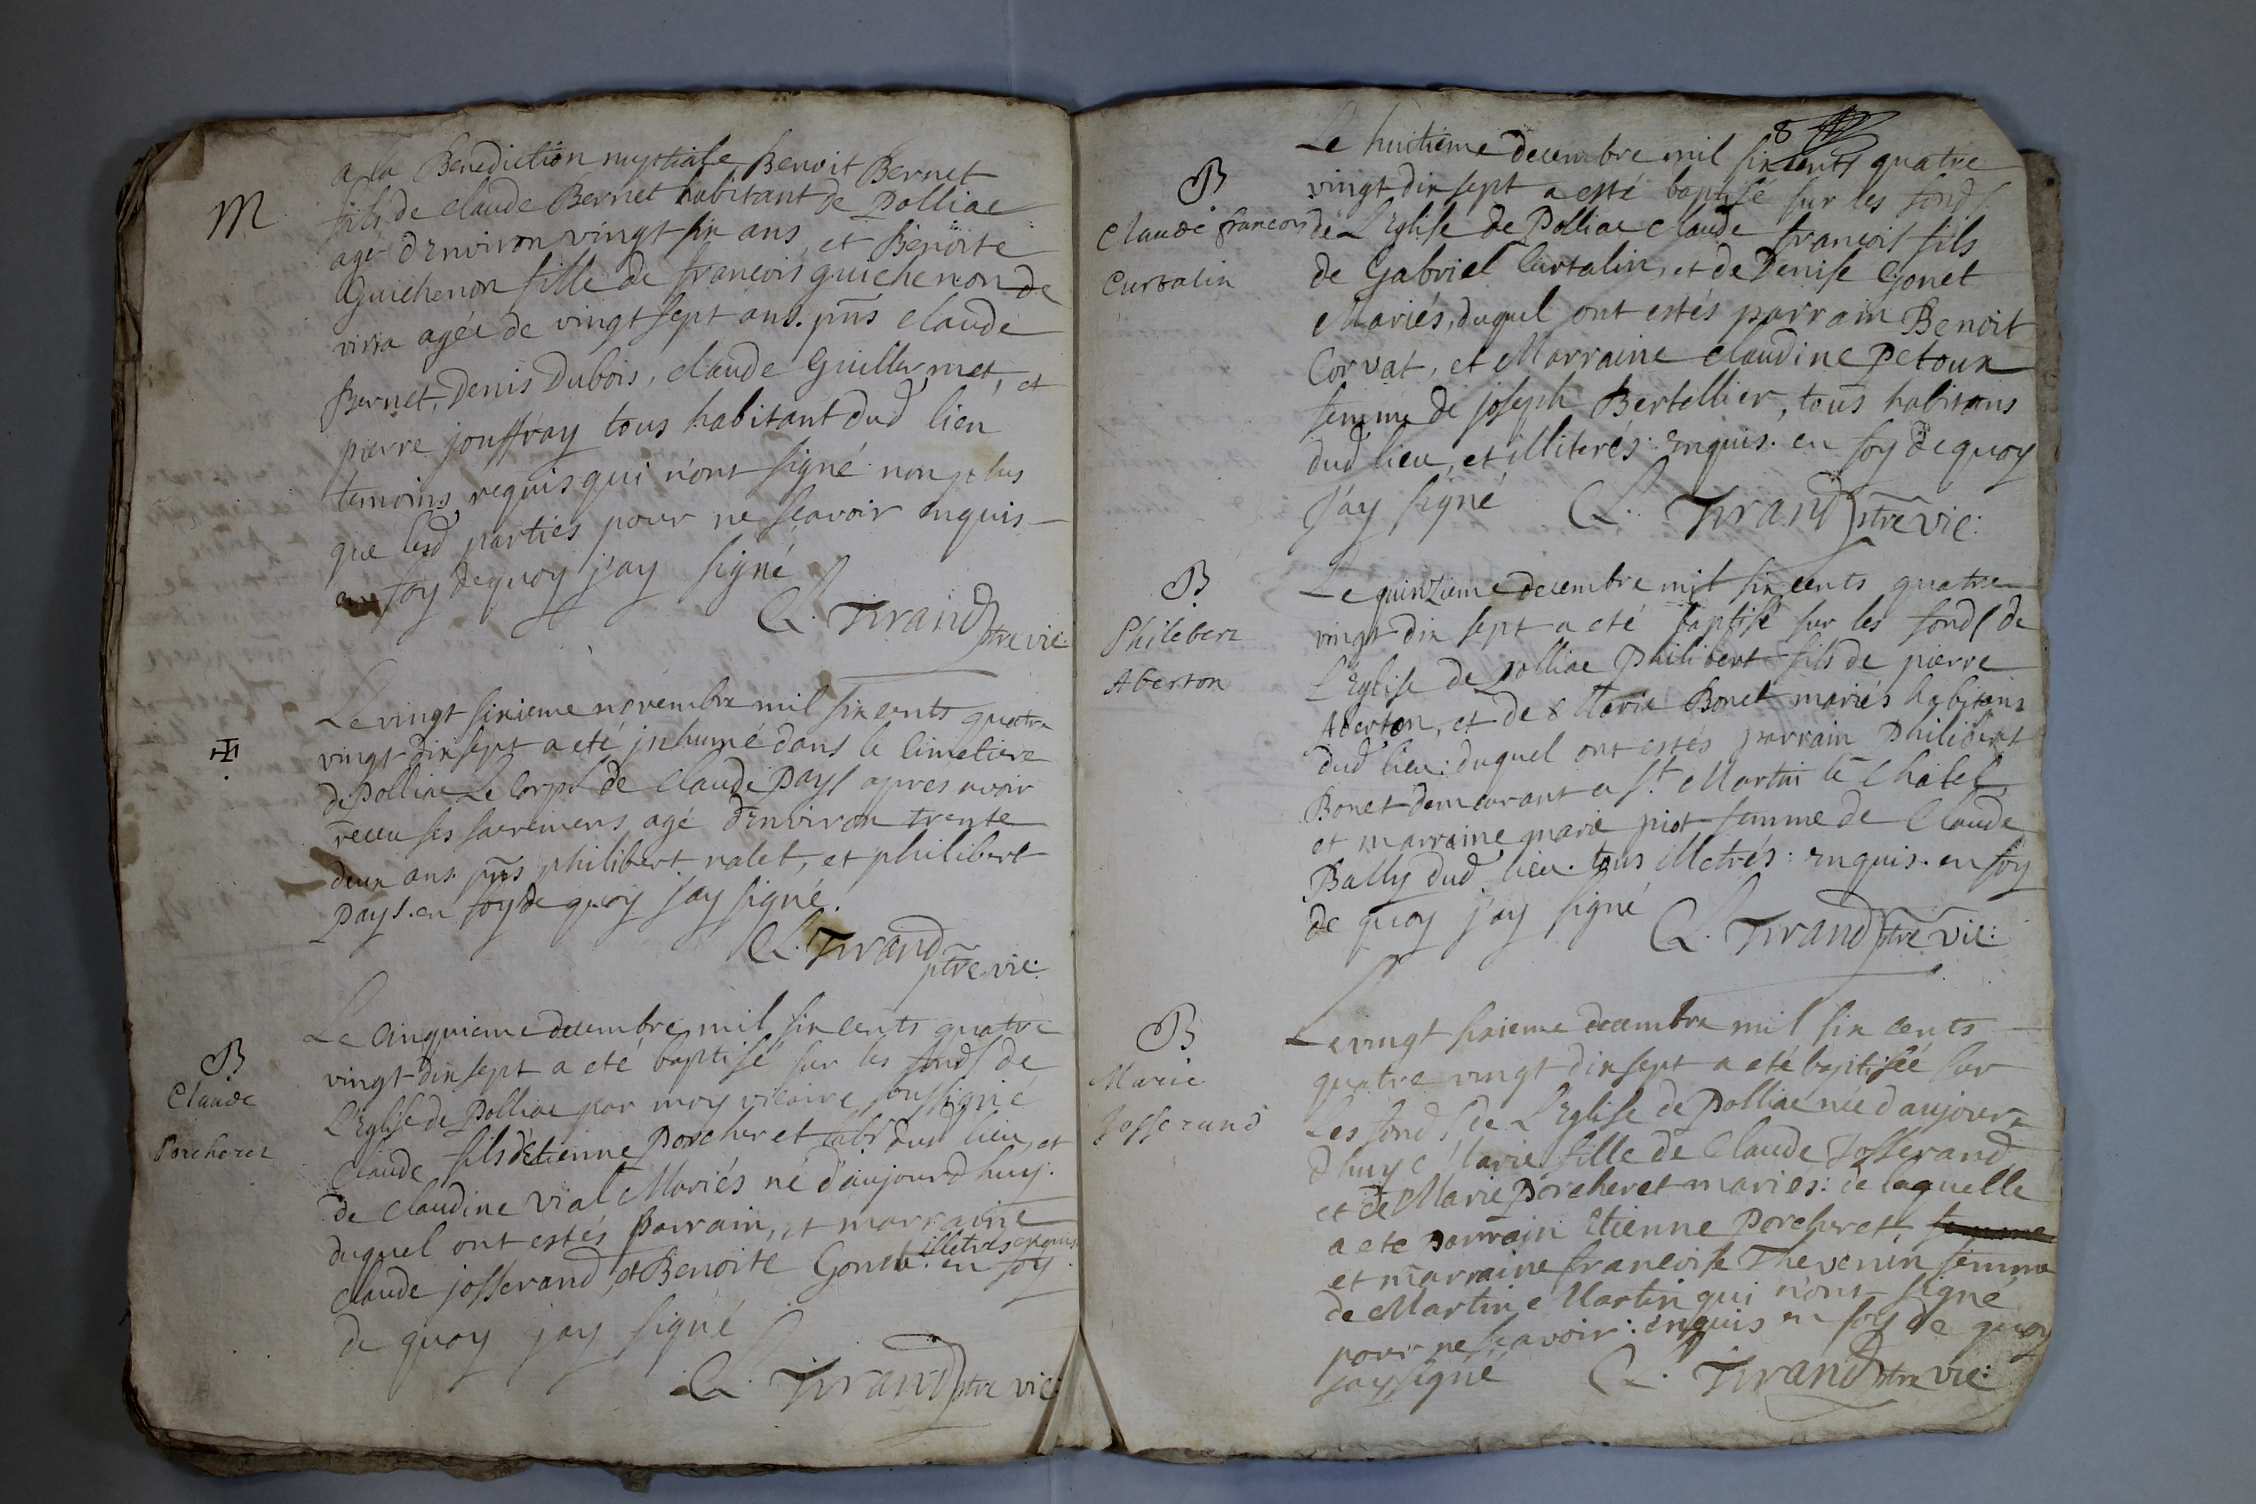 M
a la Benediction nuptiale Benoit Bernet
fils de claude Bernet habitant de Polliac
agé d'Environ vingt six ans, et Benoite
Guichenon fille de francois guichenon de
viria agée de vingt sept ans. pñs claude
Bernet, Denis Dubois, claude Guillermet, et
pierre jouffray tous habitant dud lieu
temoins requis qui n'ont signé non plus
que lesd parties pour ne scavoir enquis
en foy de quoy j'ay signé
C. Tirand ptre vic:
Le vingt sixieme novembre mil six cents quatre
vingt dix sept a eté jnhumé dans le Cimetiere
de Polliac Le Corps de Claude Pays apres avoir
receu ses sacremens agé d'Environ trente
deux ans pñs philibert valet, et philibert
Pays. en foy de quoy j'ay signé.
C. Tirand
ptre vic:
B
Claude
Porcheret
Le cinquieme decembre mil six cents quatre
vingt dix sept a eté baptisé sur les fonds de
L'Eglise de Polliac par moy vicaire soussigné
Claude fils d'Etienne Porcheret labr dud lieu, et
de Claudine Vial Mariés né d'aujourd huy.
duquel ont estés Parrain, et marraine
illetrés enquis
claude josserand, et Benoite Gonet. en foy
de quoy j'ay signé
C. Tirand ptre vic:
8
B
Claude francois
Curtalin
Le huitieme decembre mil six cents quatre
vingt dix sept a esté baptisé sur les fonds
de L'Eglise de Polliac Claude francois fils
de Gabriel Curtalin, et de Denise Gonet
Mariés, duquel ont estés parrain Benoit
Corvat, et Marraine Claudine Petoux
femme de joseph Bertellier, tous habitans
dud lieu, et illiterés: enquis. en foy de quoy
j'ay signé
C. Tirand ptre vic:
B
Philebert
Aberton
Le quinzieme decembre mil six cents quatre
vingt dix sept a eté baptisé sur les fonds de
L'Eglise de polliac Philibert fils de pierre
Aberton, et de Marie Bonet mariés habitans
dud lieu: duquel ont estés parrain Philibert
Bonet demeurant a St. Martin le Chatel,
et marraine marie piot femme de Claude
Bally dud lieu. tous illetrés: enquis. en foy
de quoy j'ay signé
C. Tirand ptre vic:
B
Marie
Josserand
Le vingt sixieme decembre mil six cents
quatre vingt dix sept a eté baptisée sur
Les fonds de L'Eglise de Polliac née d'aujour
d'huy Marie fille de Claude Josserand
et de Marie Porcheret mariés: de laquelle
a eté parrain Etienne Porcheret femme
et marraine francoise Thevenin femme
de Martin Martin qui n'ont signé
pour ne scavoir: enquis en foy de quoy
j'ay signé
C. Tirand ptre vic: